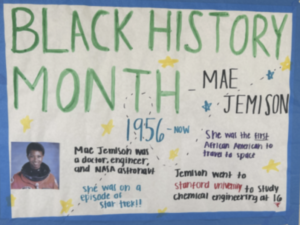 BLACK HISTORY
MONTH - MAE
JEMISON
1956-NOW
Mae Jemison was
a doctor, engineer,
and NASA astronaut
She was on a
episode of
star trek!!
She was the first
African American to
travel to space
Jemison went to
stanford university to study
chemical engineering at 16